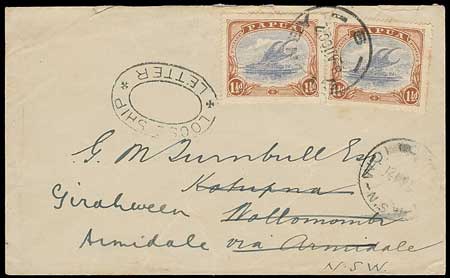 PAPUA PAPUA
1½d 1½d 1½d 1½d
LOOSE SHIP
LETTER
G. M. Turnbull Esq
Kotupna
Girahween Wollomombi
Armidale via Armidale
N.S.W.